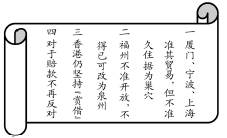 一 厦门、宁波、上海
准其贸易,但不准
久住据为巢穴
二 福州不准开放,不
得已可改为泉州
三 香港仍坚持“赏借”
四 对于赔款不再反对